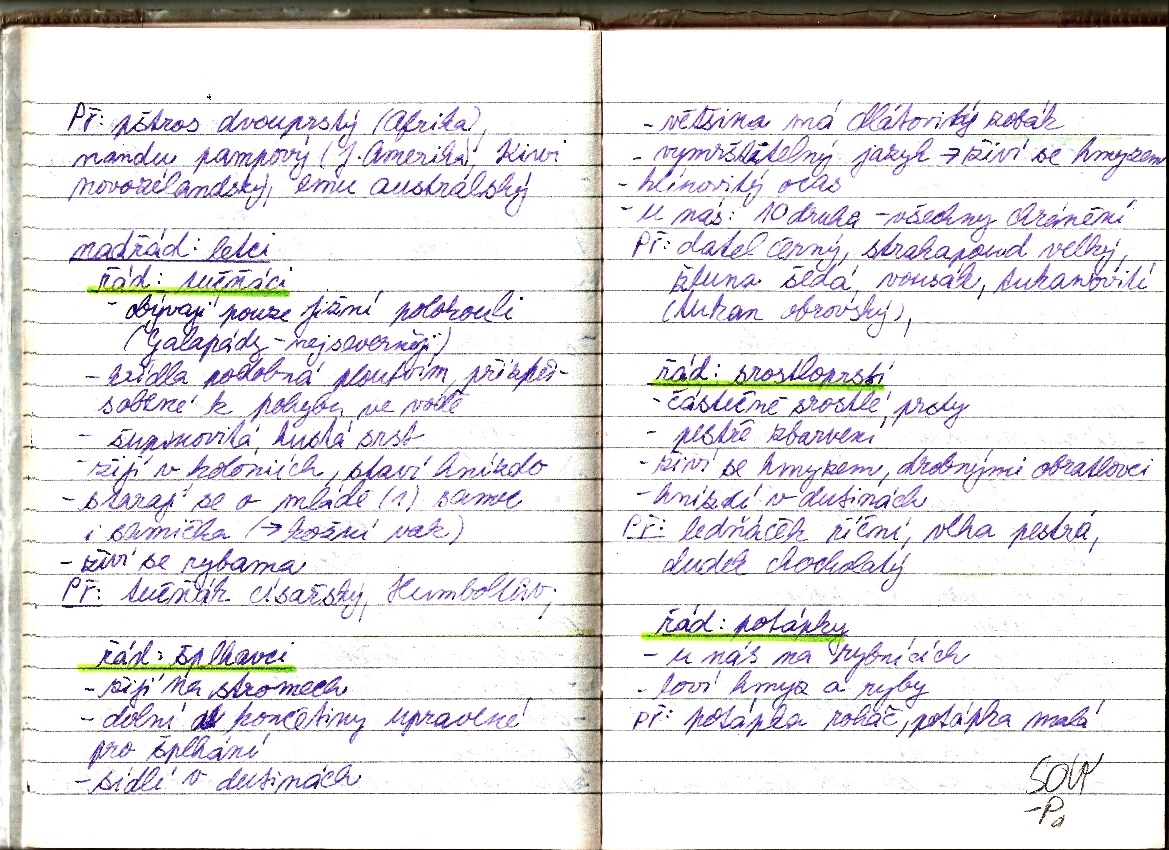 Př: pštros dvouprstý (Afrika),
nandu pampový (J. Amerika), Kiwi
novozélandský, emu australský
nadřád: letci
řád: tučňáci
- obývají pouze jižní polokouli
(Galapády - nejsevernější)
- křídla podobná ploutvím, přizpů-
sobené k pohybu ve vodě
- šupinovitá, hustá srst
- žijí v koloniích, staví hnízdo
- starají se o mládě (1) samec
i samička (→ kožní vak)
- živí se rybama
Př: tučňák císařský, Humboltův,
řád: šplhavci
- žijí na stromech
- dolní končetiny upravené
pro šplhání
- sídlí v dutinách
- většina má dlátovitý zobák
- vymrštitelný jazyk → živí se hmyzem
- klínovitý ocas
- u nás: 10 druhů - všechny chránění
Př: datel černý, strakapoud velký,
žluna šedá, vousák, tukanovití
(tukan obrovský),
řád: srostloprstí
- částečně srostlé prsty
- pestré zbarvení
- živí se hmyzem, drobnými obratlovci
- hnízdí v dutinách
Př: ledňáček říční, vlha pestrá,
dudek chocholatý
řád: potápky
- u nás na rybnících
- loví hmyz a ryby
Př: potápka roháč, potápka malá
SOVY